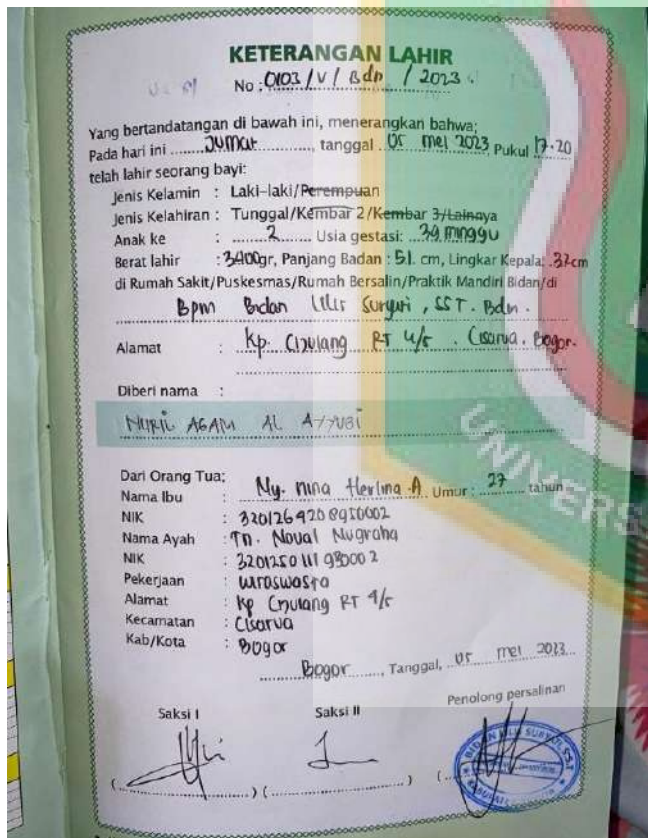 KETERANGAN LAHIR
No : 0103 / V / Bdn / 2023
Yang bertandatangan di bawah ini, menerangkan bahwa;
Pada hari ini Jumat, tanggal 05 mei 2023 Pukul 17.20
telah lahir seorang bayi:
Jenis Kelamin : Laki-laki/Perempuan
Jenis Kelahiran : Tunggal/Kembar 2/Kembar 3/Lainnya
Anak ke : 2 Usia gestasi: 39 minggu
Berat lahir : 3400gr, Panjang Badan : 51 cm, Lingkar Kepala: cm
di Rumah Sakit/Puskesmas/Rumah Bersalin/Praktik Mandiri Bidan/di
Bpm Bidan Lilis , SST. Bdn.
Alamat : Kp. RT 4/5 . Cisarua. Bogor.
Diberi nama :
NURIL AGAM AL AYYUBI
Dari Orang Tua:
Nama Ibu : Ny. Nina Herlina A Umur : 27 tahun
NIK : 3201264208950002
Nama Ayah : Tn. Noval Nugraha
NIK :
Pekerjaan : wiraswasta
Alamat : Kp RT 4/5
Kecamatan : Cisarua
Kab/Kota : Bogor
Bogor, Tanggal, 05 mei 2023
Saksi I Saksi II Penolong persalinan
UNIVERS